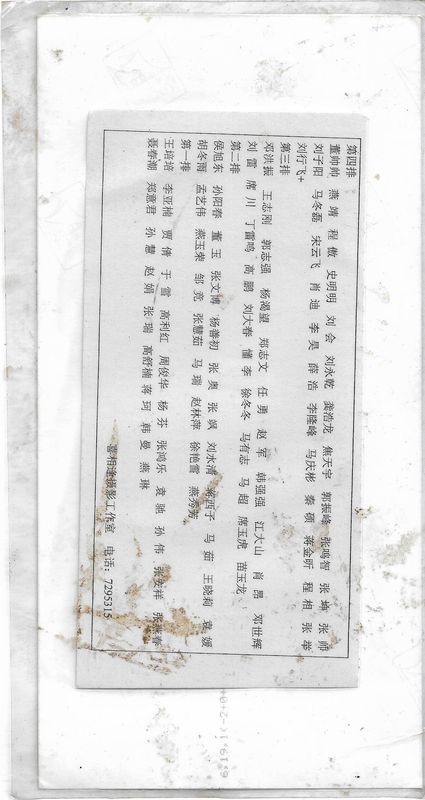 第四排
董帅帅 燕 靖 程 傲 史明明 刘 会 刘永乾 龚浩龙 焦天宇 郭振峰 张鸣智 张 坤 张 帅
刘子阳 马冬磊 宋云飞 肖 迪 李 昊 薛 浩 李隆峰 马庆彬 秦 硕 蒋金昕 程 相 张 举
刘行飞+
第三排
邓洪振 王志刚 郭志强 杨渴望 郑志文 任 勇 赵 军 韩强强 江大山 肖 昂 邓世辉
刘 雷 席 川 丁雷鸣 高 鹏 刘大春 懂 李 徐冬冬 马有志 马 超 席玉虎 苗玉龙
第二排
侯旭东 孙阳春 董 玉 张文博 杨善初 张 奥 张 飒 刘水清 蒋西子 马 茹 王晓莉 袁 媛
胡冬雨 孟艺伟 燕玉荣 邹 亮 张慧茹 马 瑞 赵林萍 徐艳雪 燕秀芳
第一排
王培培 李亚楠 贾 倩 于 雪 高利红 周俊华 杨 芬 张鸿乐 袁 驰 孙 伟 张安祥 张燕春
聂春潮 郑意君 孙 慧 赵 娟 张 瑞 高舒楠 蒋 珂 韩 曼 燕 琳
喜相逢摄影工作室 电话：7295315